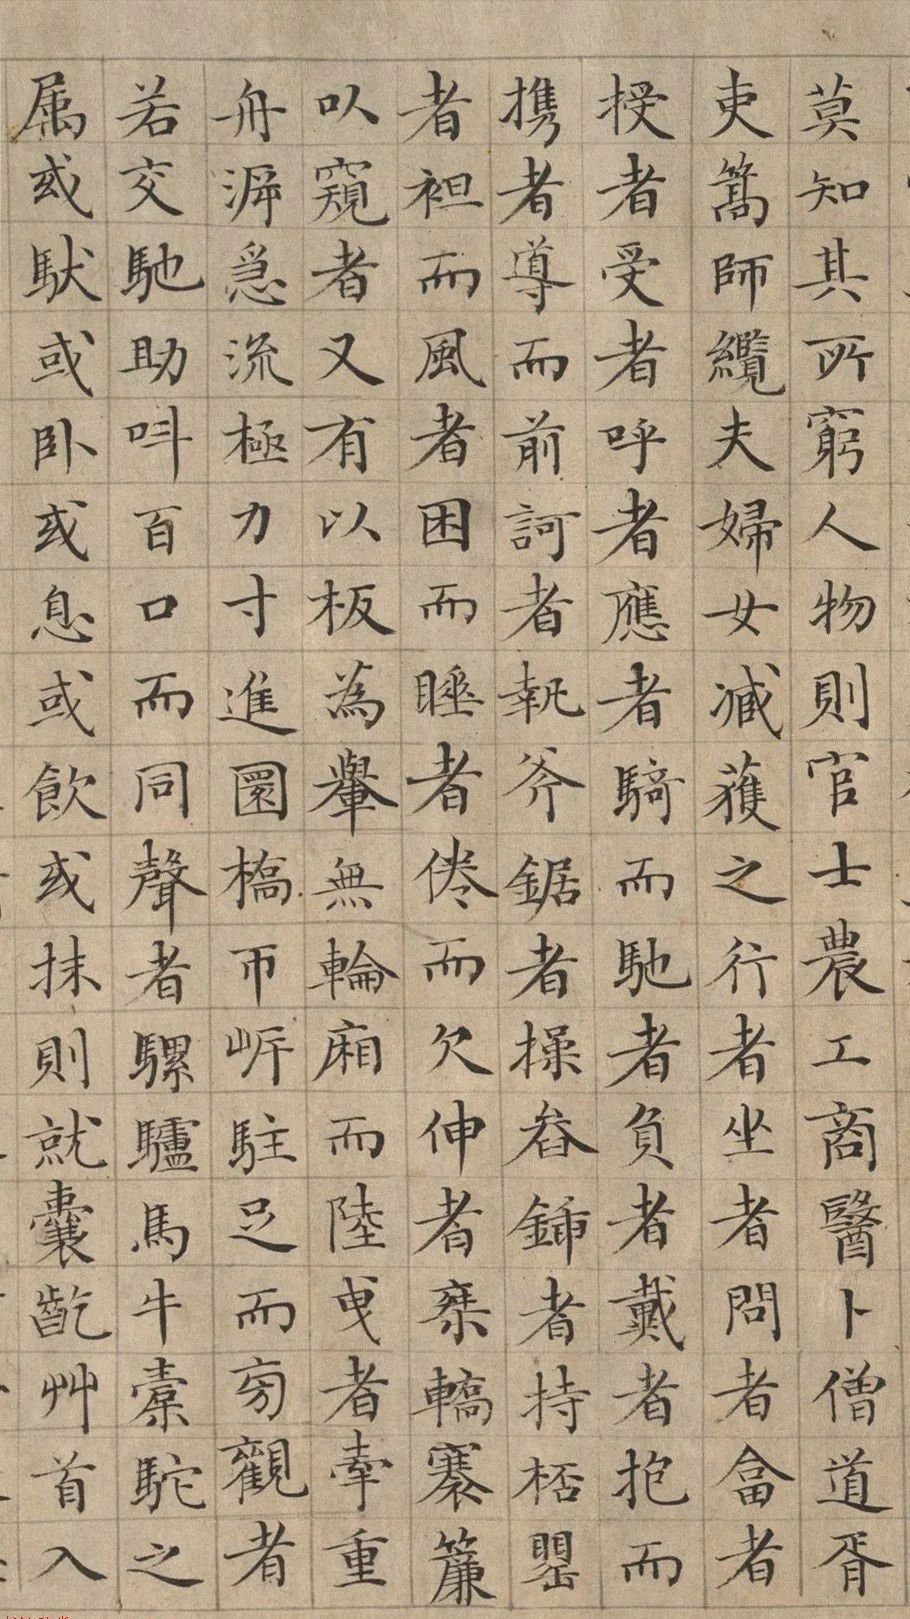 莫知其所窮人物則官士農工商醫卜僧道胥
吏篙師纜夫婦女臧獲之行者坐者問者畣者
授者受者呼者應者騎而馳者負者戴者抱而
携者導而前訶者執斧鋸者操畚鍤者持桮罌
者袒而風者困而睡者倦而欠伸者乘轎褰簾
以窺者又有以板為轝無輪廂而陸曳者牽重
舟泝急流極力寸進圜橋帀岸駐足而旁觀者
若交馳助呌百口而同聲者騾驢馬牛橐駝之
属或馱或卧或息或飲或秣則就囊齕艸首入